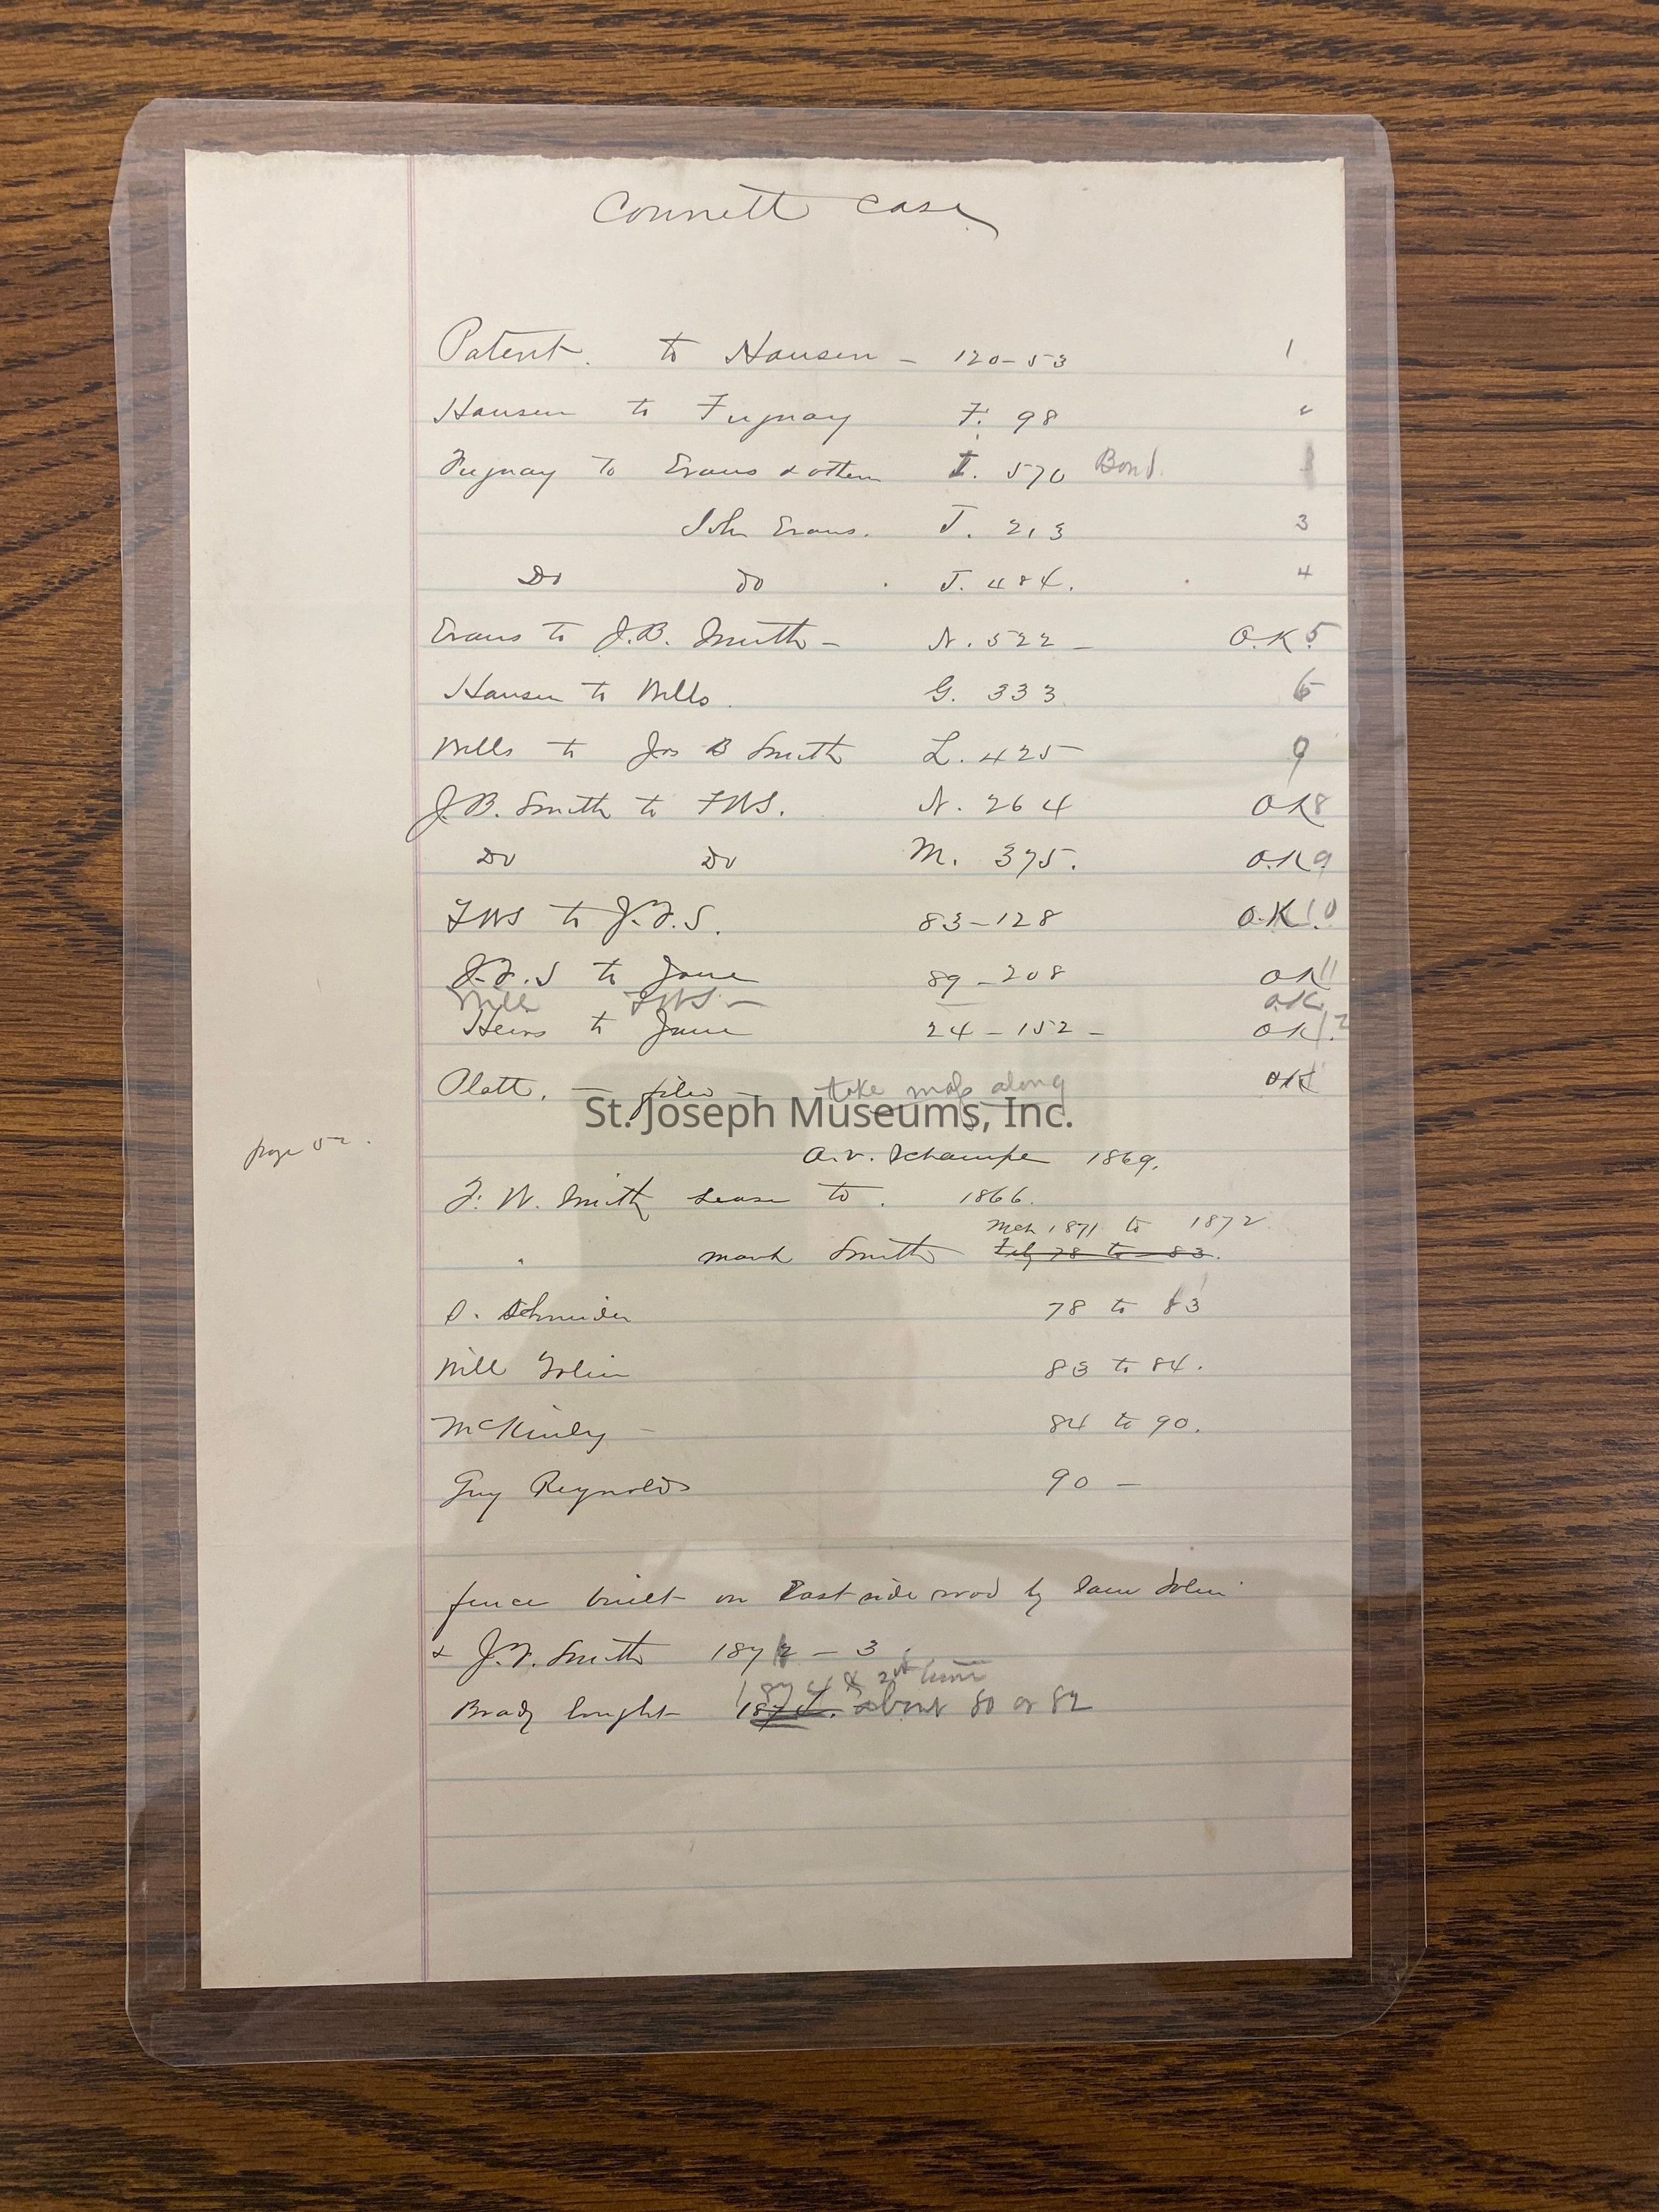 Connett case
Patent. to Hausen - 120-53 1
Hausen to Fuqnay F. 98 2
Fuqnay To Evans & others I. 570 Bond.
John Evans. J. 213 3
Do Do J. 484. 4
Evans to J.B. Smith - N. 522 - O.K. 5
Hausen to Wells. G. 333. 6
Wells to Jos B Smith L. 425 9
J.B. Smith to FWS. N. 264 OK 8
Do Do M. 375. O.K 9
FWS to J.F.S. 83-128 O.K. 10
J.F.S to Jane 89-208 OK 11
Will FWS - O.K.
Heirs to Jane 24-152- OK. 12
Platt. - files - take map along OK
St. Joseph Museums, Inc.
page 52.
A.V. Schampe 1869.
F. W. Smith Lease to. 1866.
Mch 1871 to 1872
" Mark Smith Feby 78 to 83.
Schneider 78 to 83
Will 83 to 84.
McKinly - 84 to 90.
Guy Reynolds 90 -
fence built on East side road by
& J.F. Smith 1872-3.
1874 & 2nd time
Brady bought 187 about 80 or 82